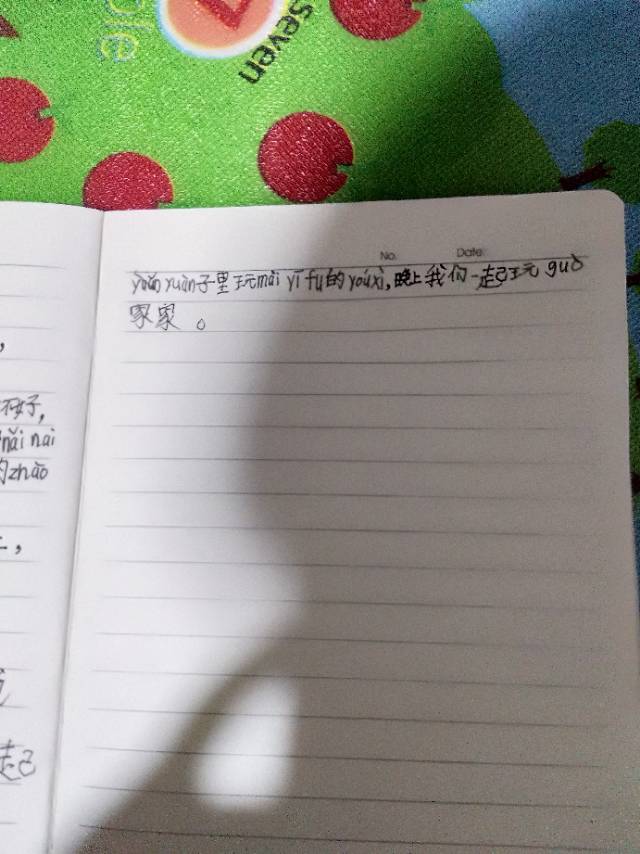 ple
seven
No.
Date
yuàn yuàn子里玩mǎi yī fu的yóuxì,晚上我们一起玩guò
家家。
不好,
nǎi nai
的zhāo
,
起